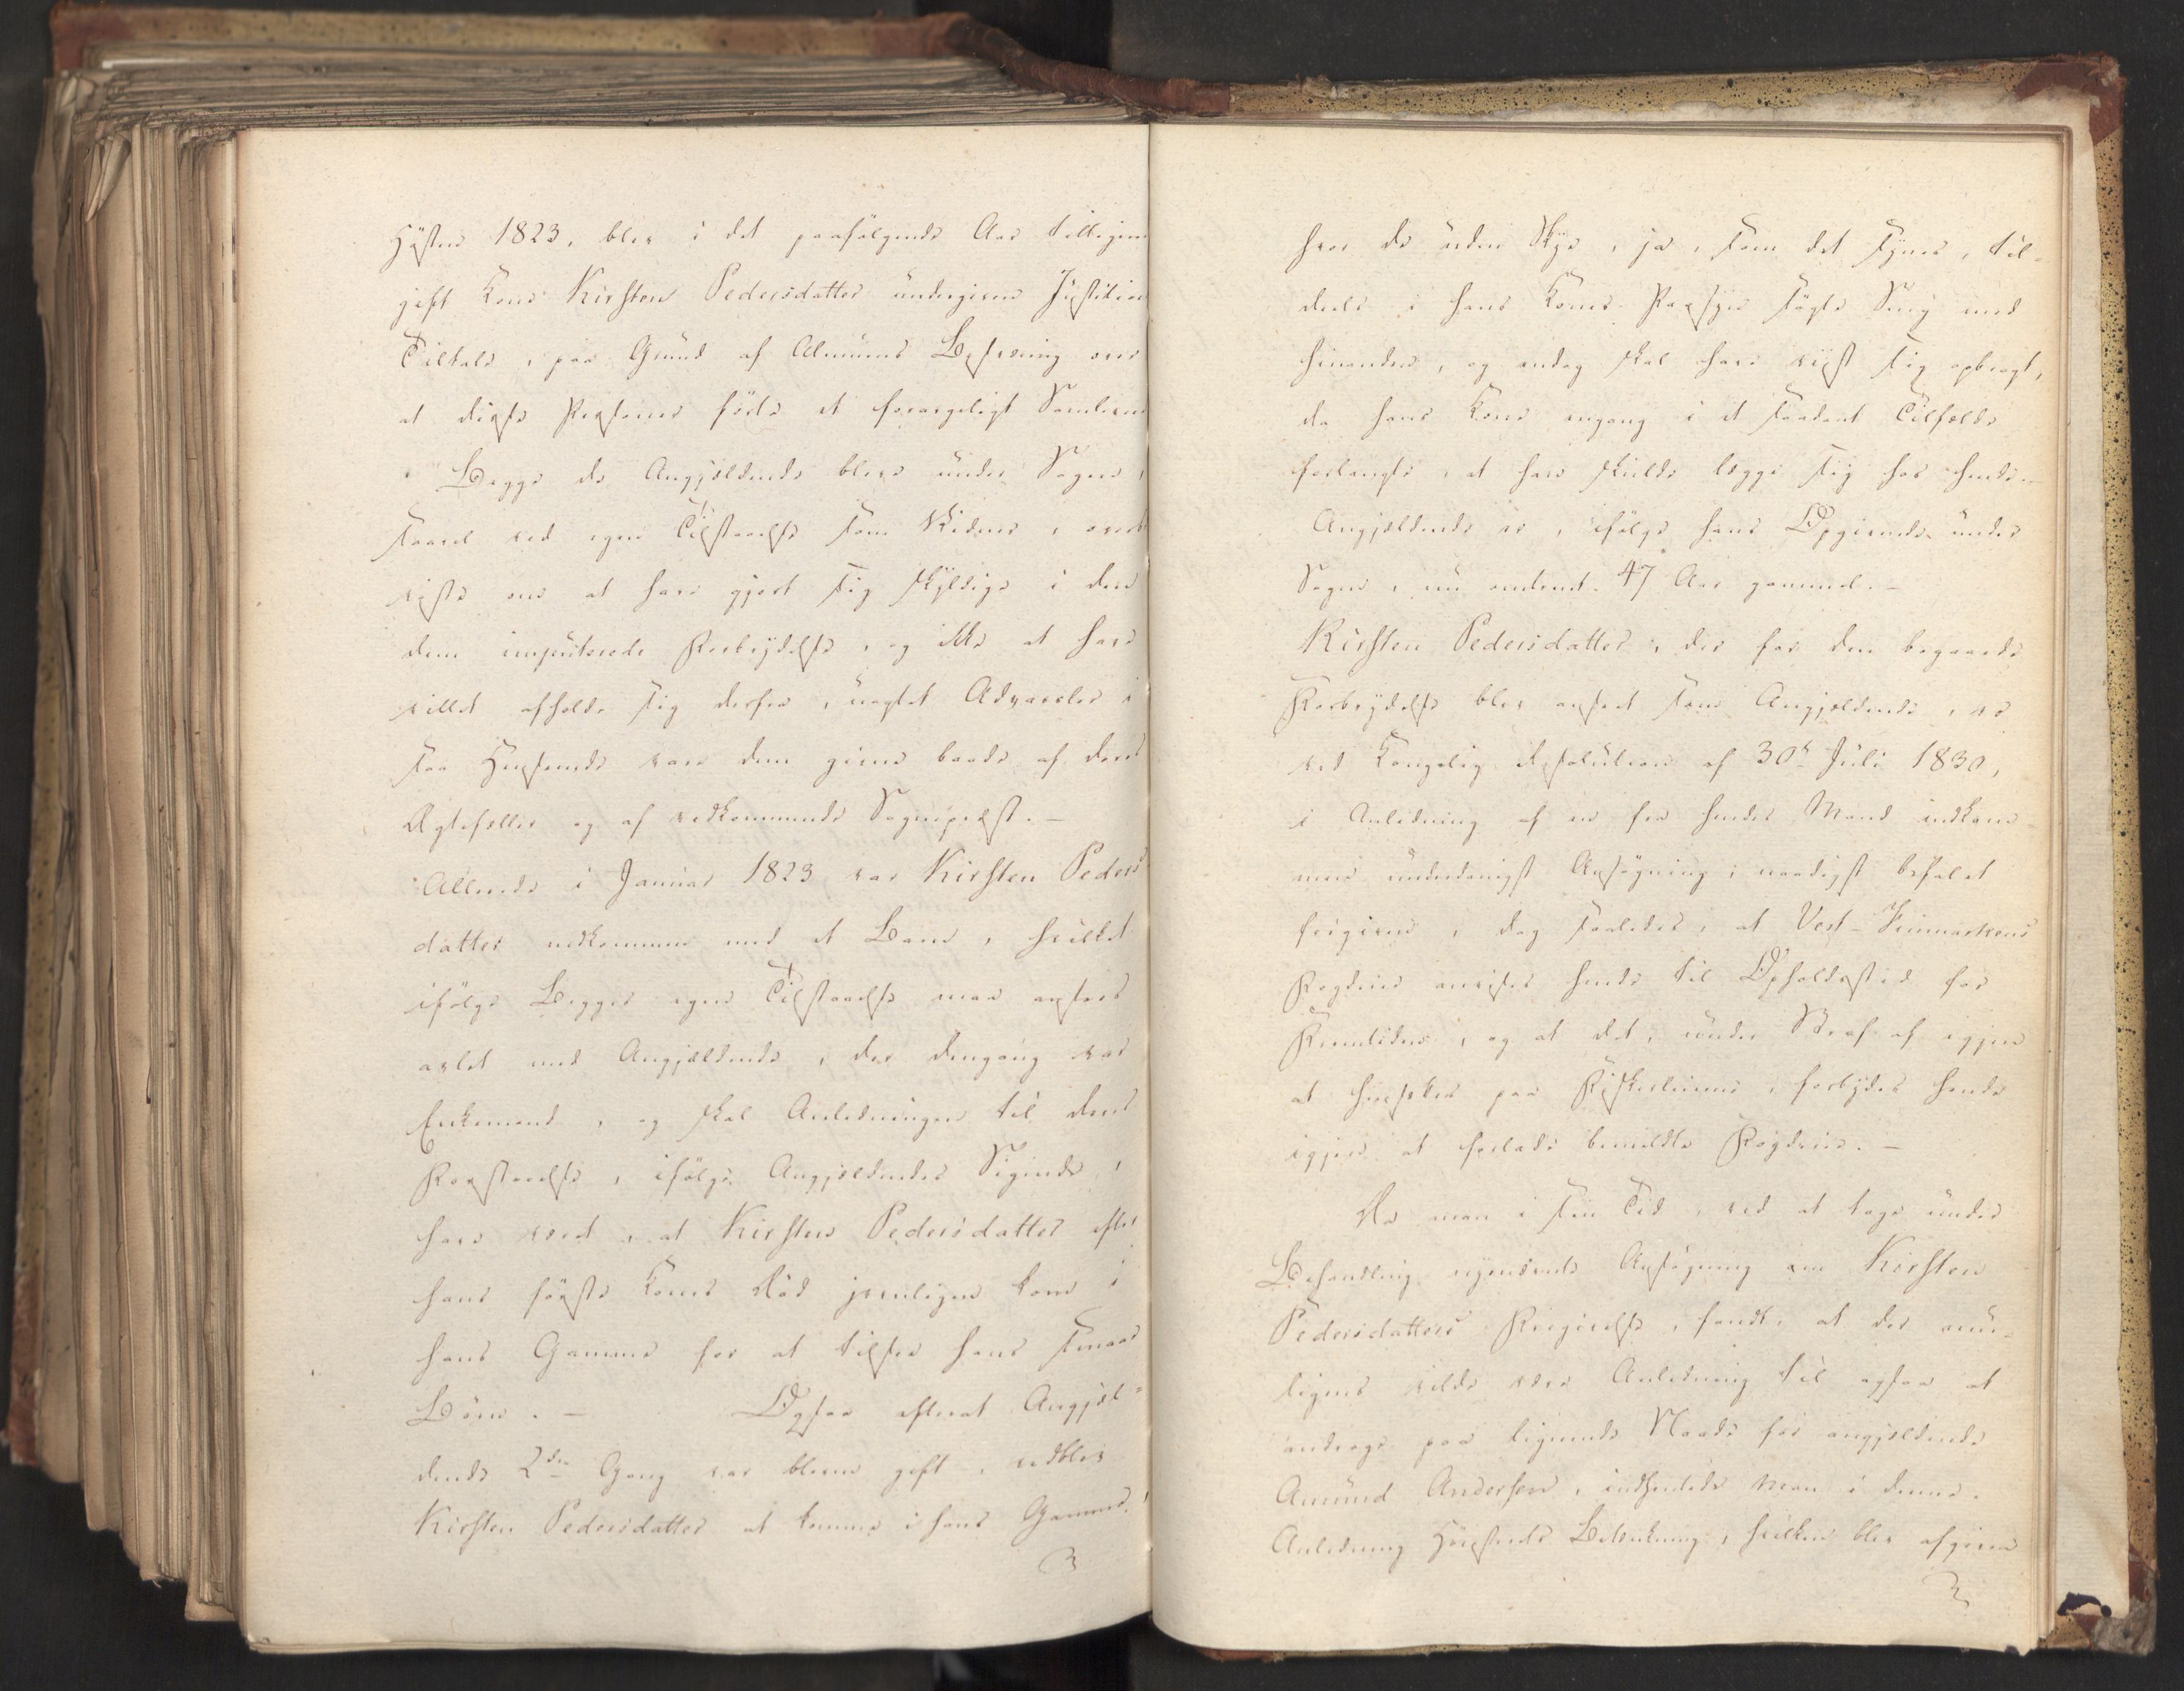 Høsten 1823, blev i det paafølgende Aar tilligem
gift Kone Kirsten Pedersdatter undergiven Justitiens
Tiltale, paa Grund af Almuens Besværing over
at disse Personer førte et forargeligt Samliv
Begge de Angjældende bleve under Sagen,
saavel ved egen Tilstaaelse som Vidner, over-
viste om at have gjort sig skyldige i den
dem imputerede Forbrydelse, og ikke at have
villet afholde sig derfra, uagtet Advarsler i
saa Henseende vare dem givne baade af deres
Ægtefæller og af vedkommende Sognepræst. —
Allerede i Januar 1823 var Kirsten Peders
datter nedkommen med et Barn, hvilket
ifølge Begges egen Tilstaaelse maa ansees
avlet med Angjældende, der dengang var
Enkemand, og skal Anledningen til deres
Forstaaelse, ifølge Angjældendes Sigende,
have været, at Kirsten Pedersdatter efter
hans første Kones Død jevnligen kom i
hans Gamme for at tilsee hans smaae
Børn. — Ogsaa efterat Angjæl-
dende 2den Gang var bleven gift, vedblev
Kirsten Pedersdatter at komme i hans Gamme,
hvor de uden Skye, ja, som det synes, til-
deels i hans Kones Paasyn søgte Seng med
hinanden, og endog skal have viist sig opbragt,
da hans Kone engang i et saadant Tilfælde
forlangte, at han skulde lægge sig hos hende.
Angjældende er, ifølge hans Opgivende under
Sagen, nu omtrent 47 Aar gammel. —
Kirsten Pedersdatter, der for den begaaede
Forbrydelse blev anseet som Angjældende, er
ved Kongelig Resolution af 30te Juli 1830,
i Anledning af en fra hendes Mand indkom-
men underdanigst Ansøgning, naadigst befalet
frigiven, dog saaledes, at Vest-Finmarkens
Fogderie anvises hende til Opholdssted for
Fremtiden, og at det, under Straf af igjen
at hensættes paa Fiskerleierne, forbydes hende
igjen at forlade bemeldte Fogderie. —
Da man i sin Tid, ved at tage under
Behandling nysnævnte Ansøgning om Kirsten
Pedersdatters Frigivelse, fandt, at der rime-
ligens vilde være Anledning til ogsaa at
andrage paa lignende Naade for angjældende
Amund Andersen, indhentede man i denne
Anledning Høiesteds Betænkning, hvilken blev afgiven